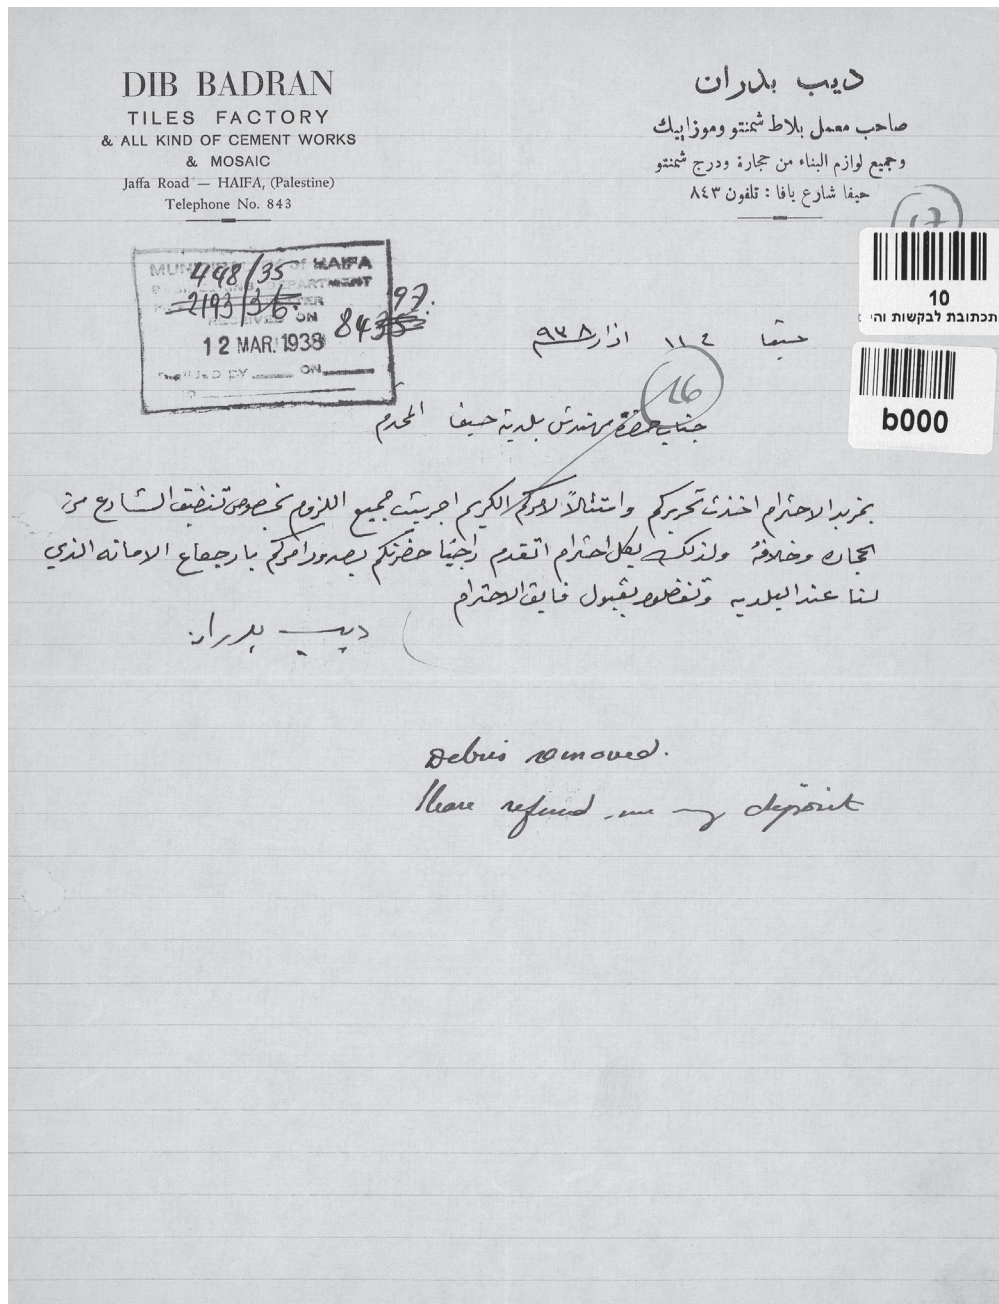 DIB BADRAN
TILES FACTORY
& ALL KIND OF CEMENT WORKS
& MOSAIC
Jaffa Road — HAIFA, (Palestine)
Telephone No. 843
ديب بدران
صاحب معمل بلاط شمنتو وموزاييك
وجميع لوازم البناء من حجارة ودرج شمنتو
حيفا شارع يافا : تلفون ٨٤٣
17
10
תכתובת לבקשות והי
b000
MUNICIPAL of HAIFA
ENGINEERING DEPARTMENT
448/35
2193/36
RECEIVED ON
97.
843
12 MAR. 1938
BY ON
حيفا ١١ اذار ٩٣٨
16
جناب حضرة مهندس بلدية حيفا المحترم
بمزيد الاحترام اخذت تحريركم وامتثالاً لامركم الكريم اجريت جميع اللزوم بخصوص تنضيف الشارع من
الحجاره وخلافهُ ولذلك بكل احترام اتقدم راجيًا حضرتكم بصدور امركم بارجعاع الامانه الذي
لنا عند البلديه وتفضلو بقبول فايق الاحترام
ديب بدران
Debris removed.
Please refund me my deposit